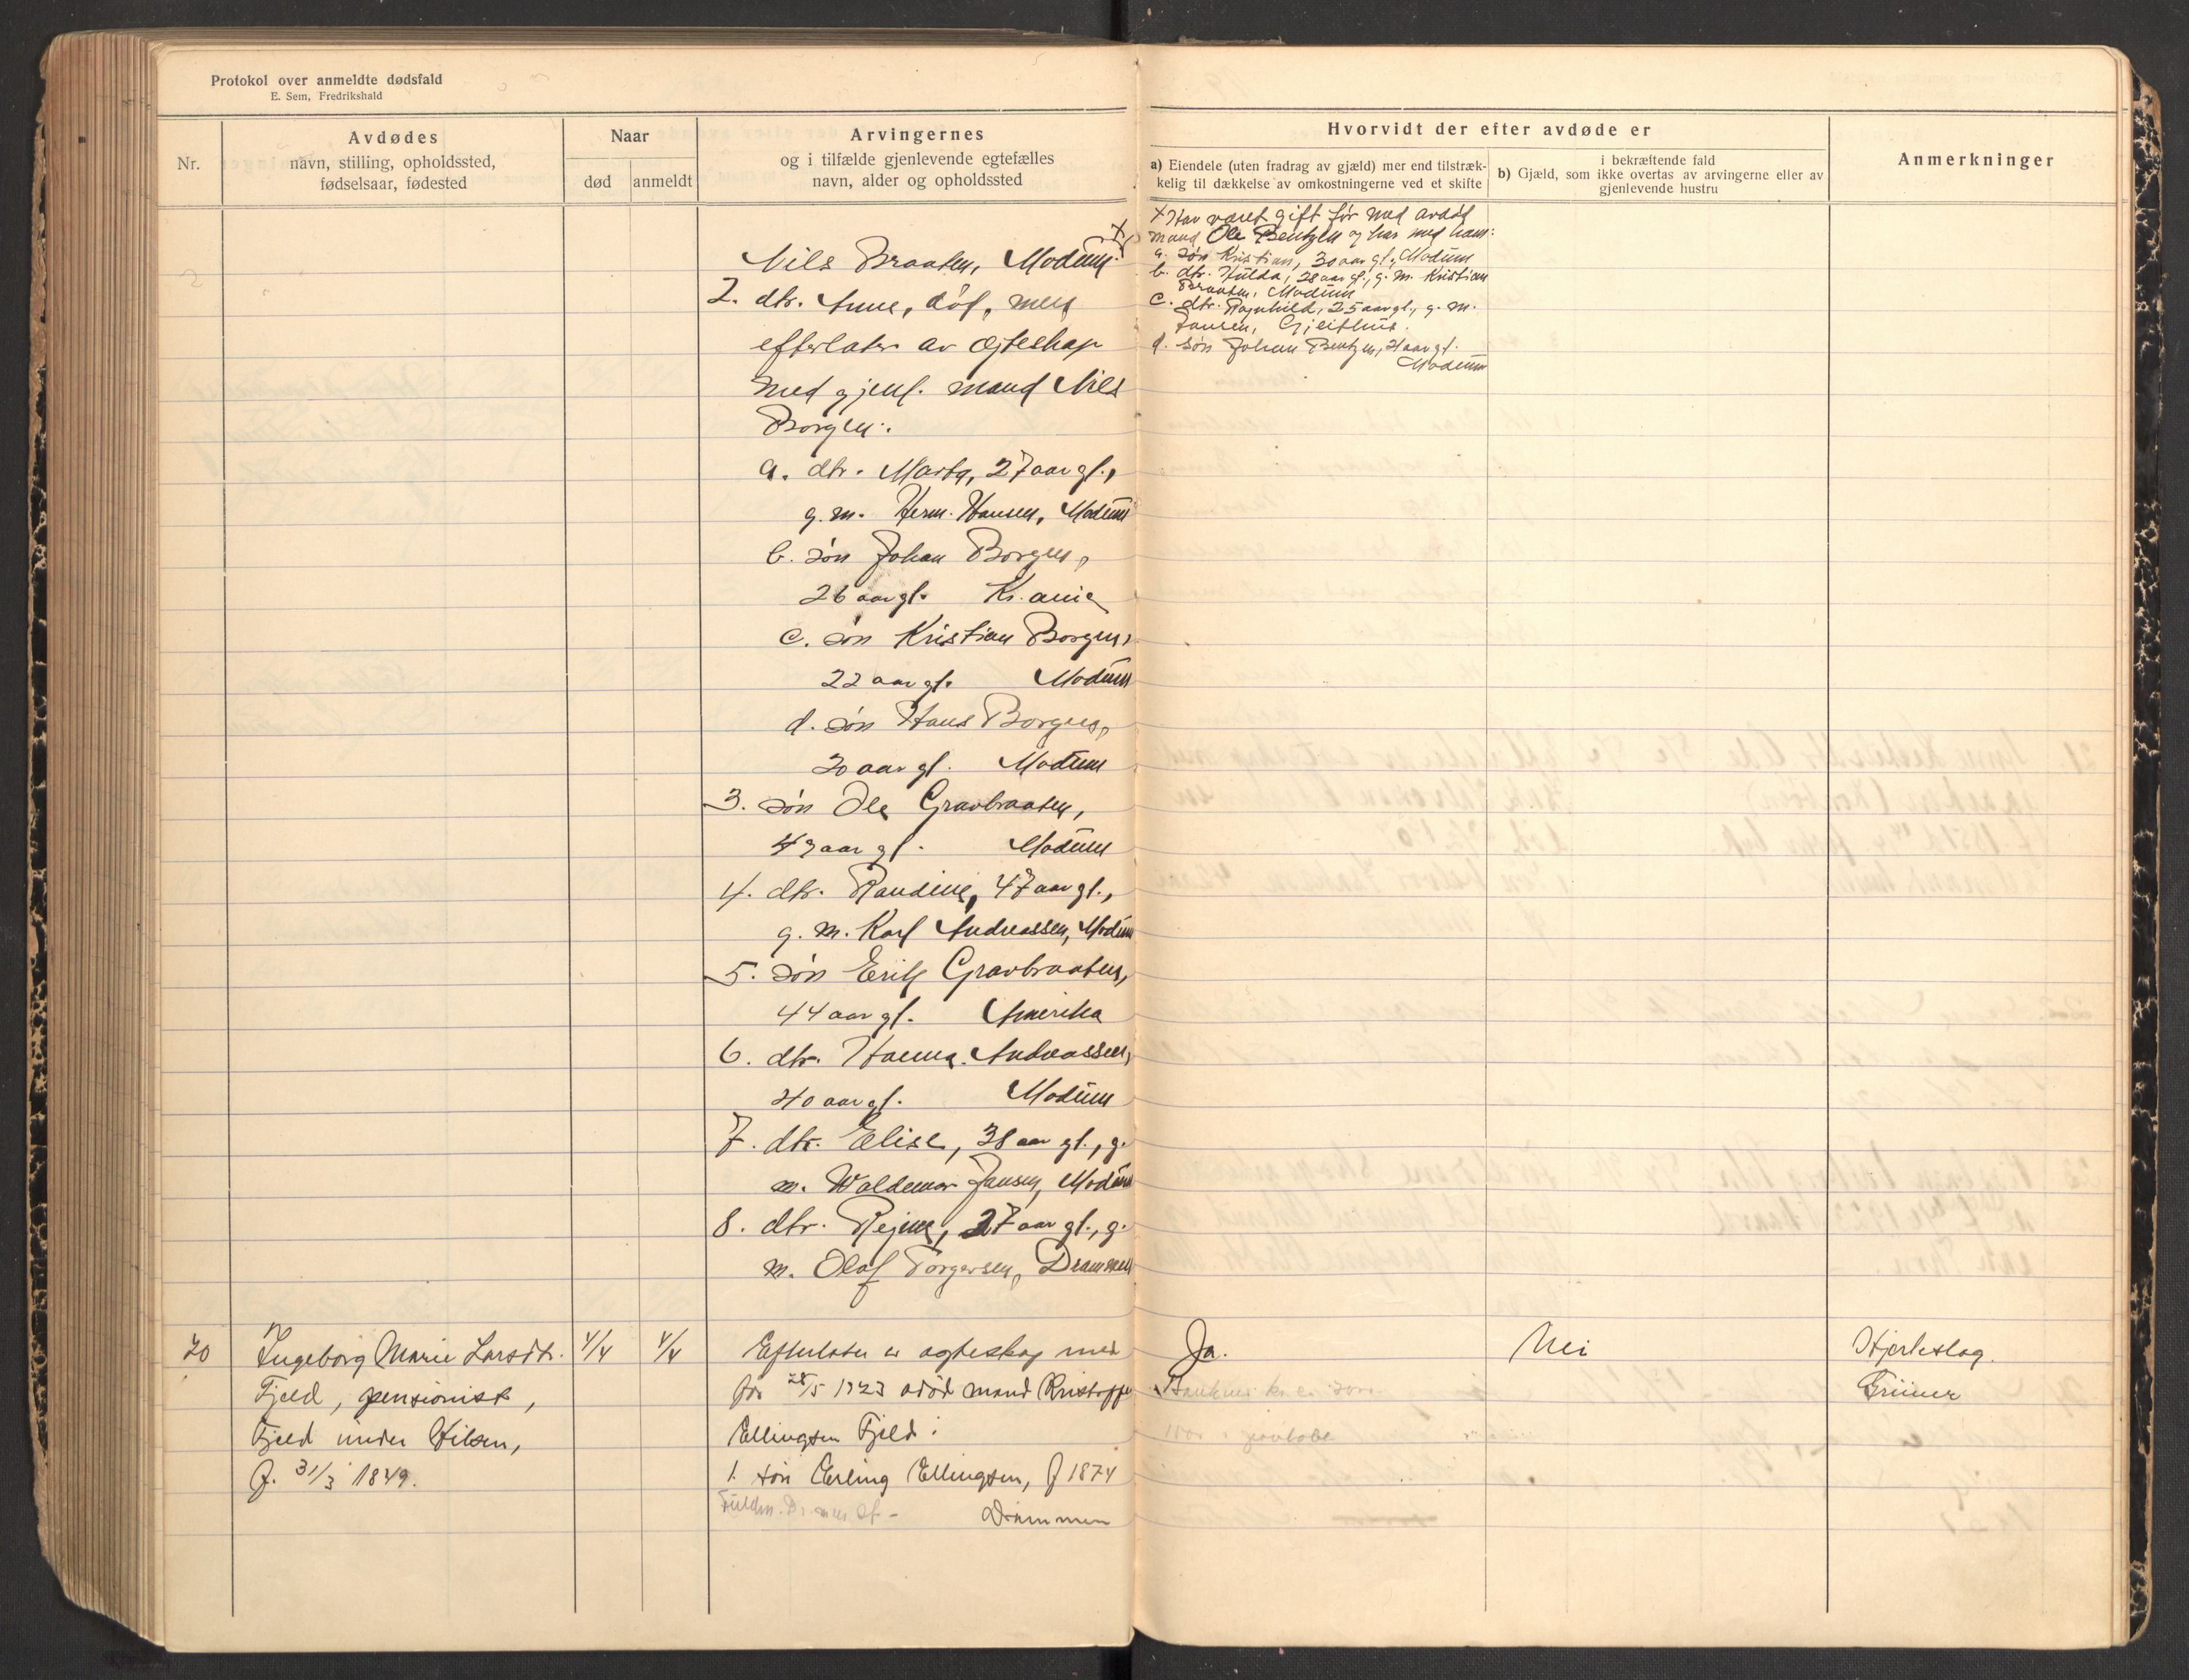 Protokol over anmeldte dødsfald
E. Sem, Fredrikshald
Nr.
Avdødes
navn, stilling, opholdssted,
fødselsaar, fødested
Naar
død
anmeldt
Arvingernes
og i tilfælde gjenlevende egtefælles
navn, alder og opholdssted
Hvorvidt der efter avdøde er
a) Eiendele (uten fradrag av gjæld) mer end tilstræk-
kelig til dækkelse av omkostningerne ved et skifte
i bekræftende fald
b) Gjæld, som ikke overtas av arvingerne eller av
gjenlevende hustru
Anmerkninger
Nils Braaten, Modum. x
2. dtr. Anne, død, men
efterlater av egteskap
med gjenl. mand Nils
Borgen:
a. dtr. Marta, 27 aar gl.,
g. m. Herm. Hansen, Modum
b. søn Johan Borgen,
26 aar gl. Kr.ania
c. søn Kristian Borgen,
22 aar gl. Modum
d. søn Hans Borgen,
20 aar gl. Modum
3. søn Ole Gravbraaten,
aar gl. Modum
4. dtr. Randine, 47 aar gl.,
g. m. Karl Andreassen, Modum
5. søn Erik Gravbraaten,
44 aar gl. Amerika
6. dtr. Hanna Andreassen,
40 aar gl. Modum
7. dtr. Elise, 38 aar gl., g.
m. Waldemar Jansen, Modum
8. dtr. Regine, 27 aar gl., g.
m. Olaf Torgersen, Drammen
x Har været gift før med avdød
mand Ole Bentzen og har med ham:
a. søn Kristian, 30 aar gl., Modum
b. dtr. Hulda, 28 aar gl., g. m. Kristian
Braaten, Modum
c. dtr. Ragnhild, 25 aar gl., g. m.
Jansen, Gjeithus.
d. søn Johan Bentzen, 21 aar gl.
Modum
20
Ingeborg Marie Larsdtr.
Fjeld, pensionist,
Fjeld under Hilsen,
f. 31/3 1849.
4/4
4/4
Efterlater av egteskap med
før 28/5 1923 avdød mand Kristoffer
Ellingsen Fjeld:
1. søn Erling Ellingsen, f 1874
Drammen
Ja.
Nei
Hjerteslag.
Grüner